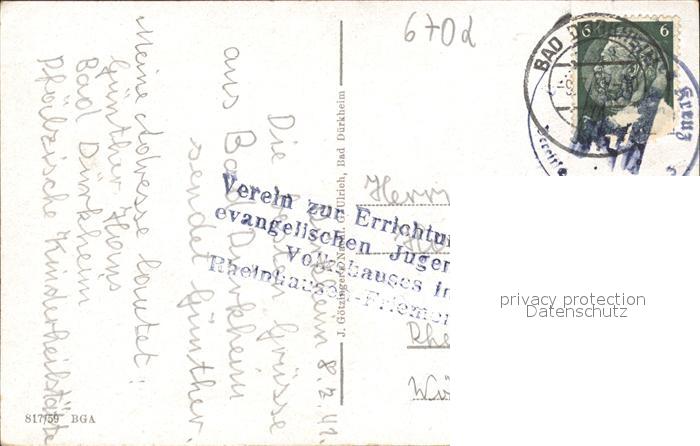 670d
BAD DÜRKHEIM
6 6
Kreuz
Meine Adresse lautet:
Günther Hans
Bad Dürkheim
Pfälzische Kinderheilstätte
Dürkheim 8.7.41.
Die besten Grüsse
aus Bad Dürkheim
sendet Günther.
J. Götzinger, Nachf. G. Ulrich, Bad Dürkheim
Herrn
Verein zur Errichtu
evangelischen Jugen
Volkshauses i
Rheinhausen-Friemer
Rhe
817/59 BGA
privacy protection
Datenschutz